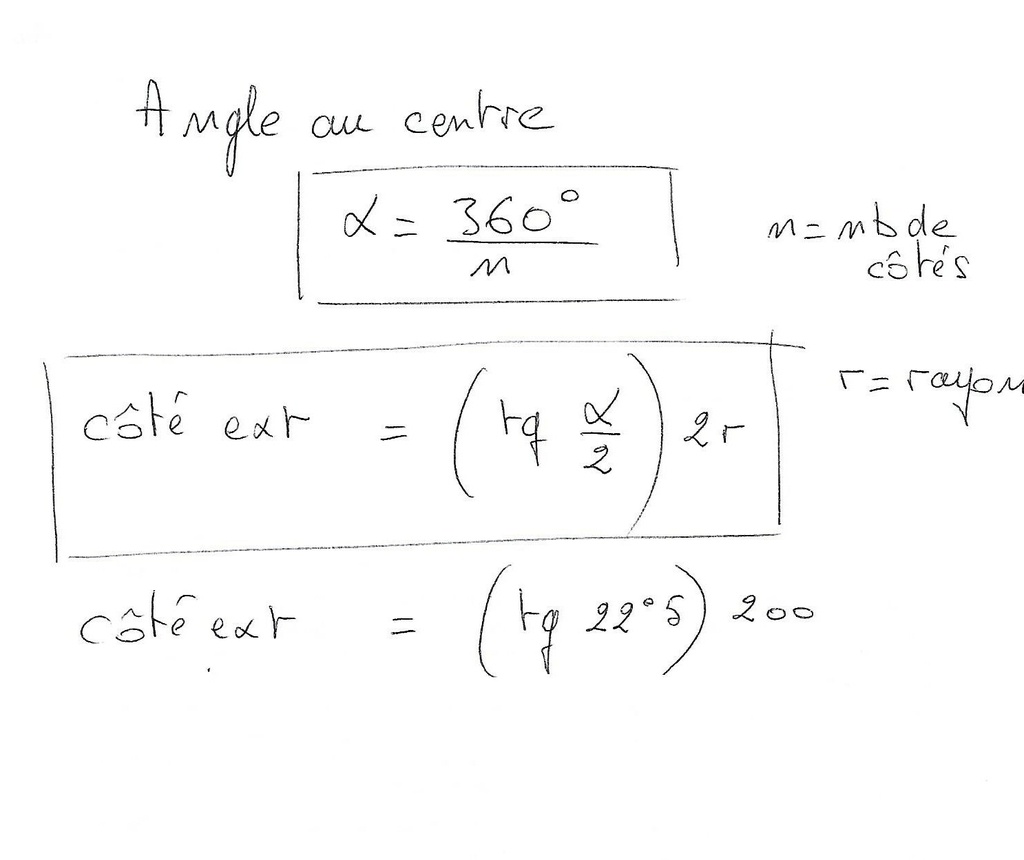 Angle au centre
α = 360° / n
n = nb de
côtés
côté ext = (tg α/2) 2r
r = rayon
côté ext = (tg 22°5) 200